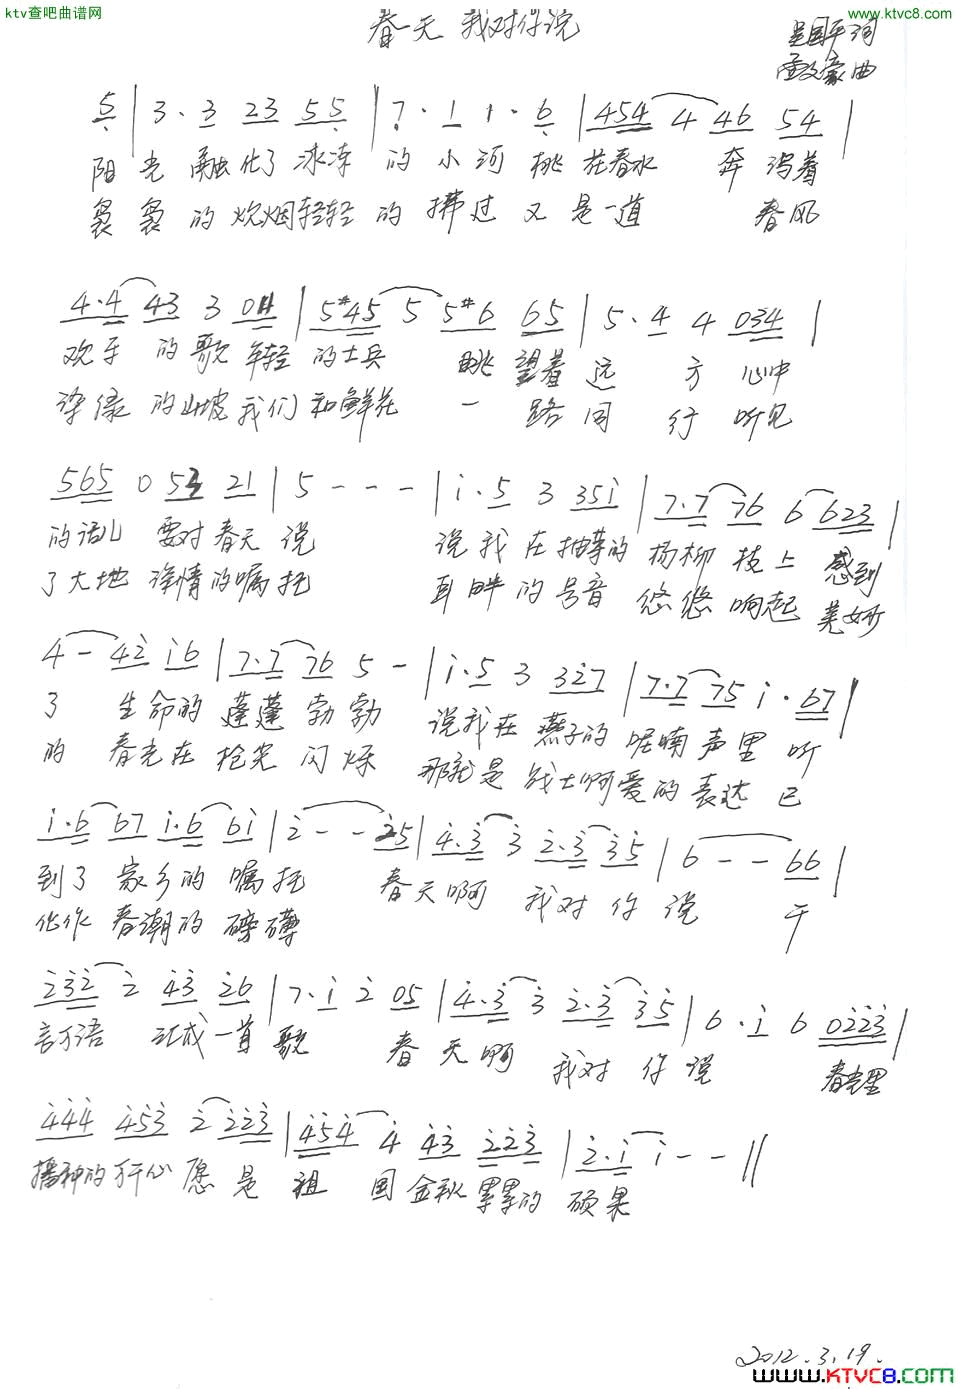 ktv查吧曲谱网
www.ktvc8.com
春天 我对你说
吴国平词
孟文豪曲
5 | 3·3 23 55 | 7·1 1·6 | 454 4 46 54 |
阳光 融化了冰冻 的小河 桃花春水 奔涌着
袅袅的炊烟轻轻的拂过 又是一道 春风
4·4 43 3 011 | 5#45 5 5#6 65 | 5·4 4 034 |
欢乐 的歌 年轻 的士兵 眺望着远方 心中
染绿 的山坡 我们 和鲜花 一路同行 听见
565 0 53 21 | 5 - - - | i·5 3 35i | 7·7 76 6 623 |
的话儿 要对春天说 说我在抽芽的杨柳枝上 感到
了大地 深情的嘱托 耳畔的号音 悠悠响起 美妙
4 - 42 i6 | 7·7 76 5 - | i·5 3 327 | 7·7 75 i·67 |
了 生命的蓬蓬勃勃 说我在燕子的呢喃声里 听
的 春光在枪尖闪烁 那就是战士啊爱的表达 已
i·6 67 i·6 6i | 2 - - 25 | 4·3 3 2·3 35 | 6 - - 66 |
到了家乡的嘱托 春天啊 我对你说 千
化作春潮的磅礴
232 2 43 26 | 7·i 2 05 | 4·3 3 2·3 35 | 6·i 6 0223 |
言万语 汇成一首歌 春天啊 我对你说 春光里
444 453 2 223 | 454 4 43 223 | 2·i i - - ||
播种的 心愿是 祖国金秋累累的硕果
2012.3.19.
www.KTVC8.com